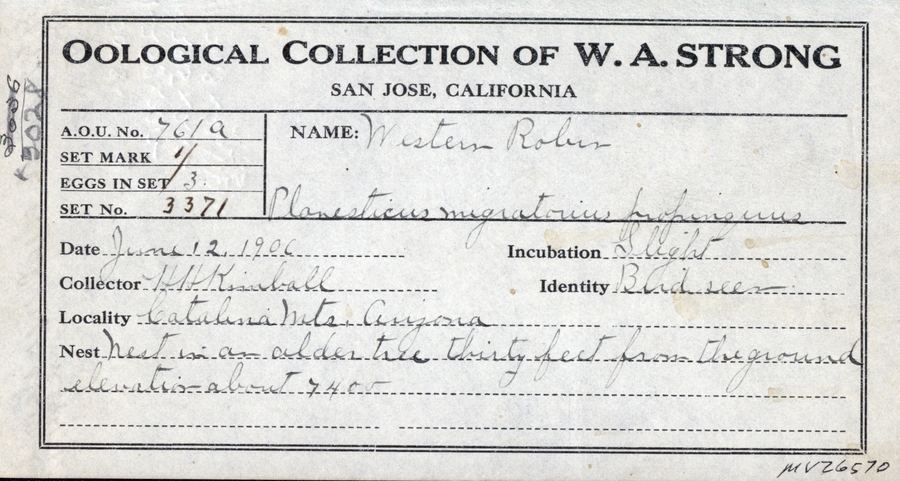 OOLOGICAL COLLECTION OF W. A. STRONG
SAN JOSE, CALIFORNIA
A.O.U. No. 761a
SET MARK 1/
EGGS IN SET 3.
SET No. 3371
NAME: Western Robin
Planesticus migratorius propinquus
Date June 12, 1900
Incubation Slight
Collector H H Kimball
Identity Bird seen
Locality Catalina Mts. Arizona
Nest Nest in an alder tree thirty feet from the ground
elevation about 7400
3028
MVZ6570